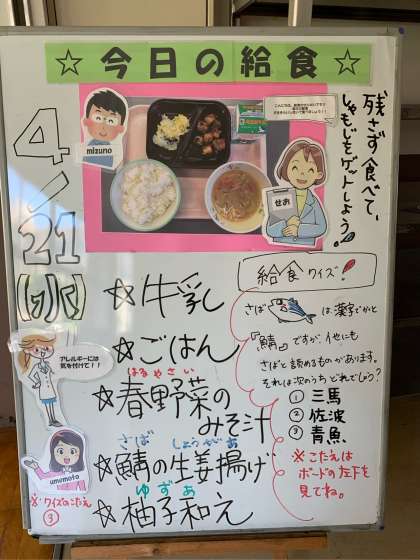 ☆今日の給食☆
残さず食べて、
しゃもじをゲットしよう!
mizuno
せお
4/21
(水)
☆牛乳
☆ごはん
はるやさい
☆春野菜の
みそ汁
さば しょうがあ
☆鯖の生姜揚げ
ゆずあ
☆柚子和え
アレルギーには
気を付けて!!
umemoto
※クイズのこたえ
③
給食クイズ!
さば は漢字でかくと
『鯖』ですが、他にも
さばと読めるものがあります。
それは次のうちどれでしょう?
① 三馬
② 佐波
③ 青魚
※こたえは
ボードの左下を
見てね。